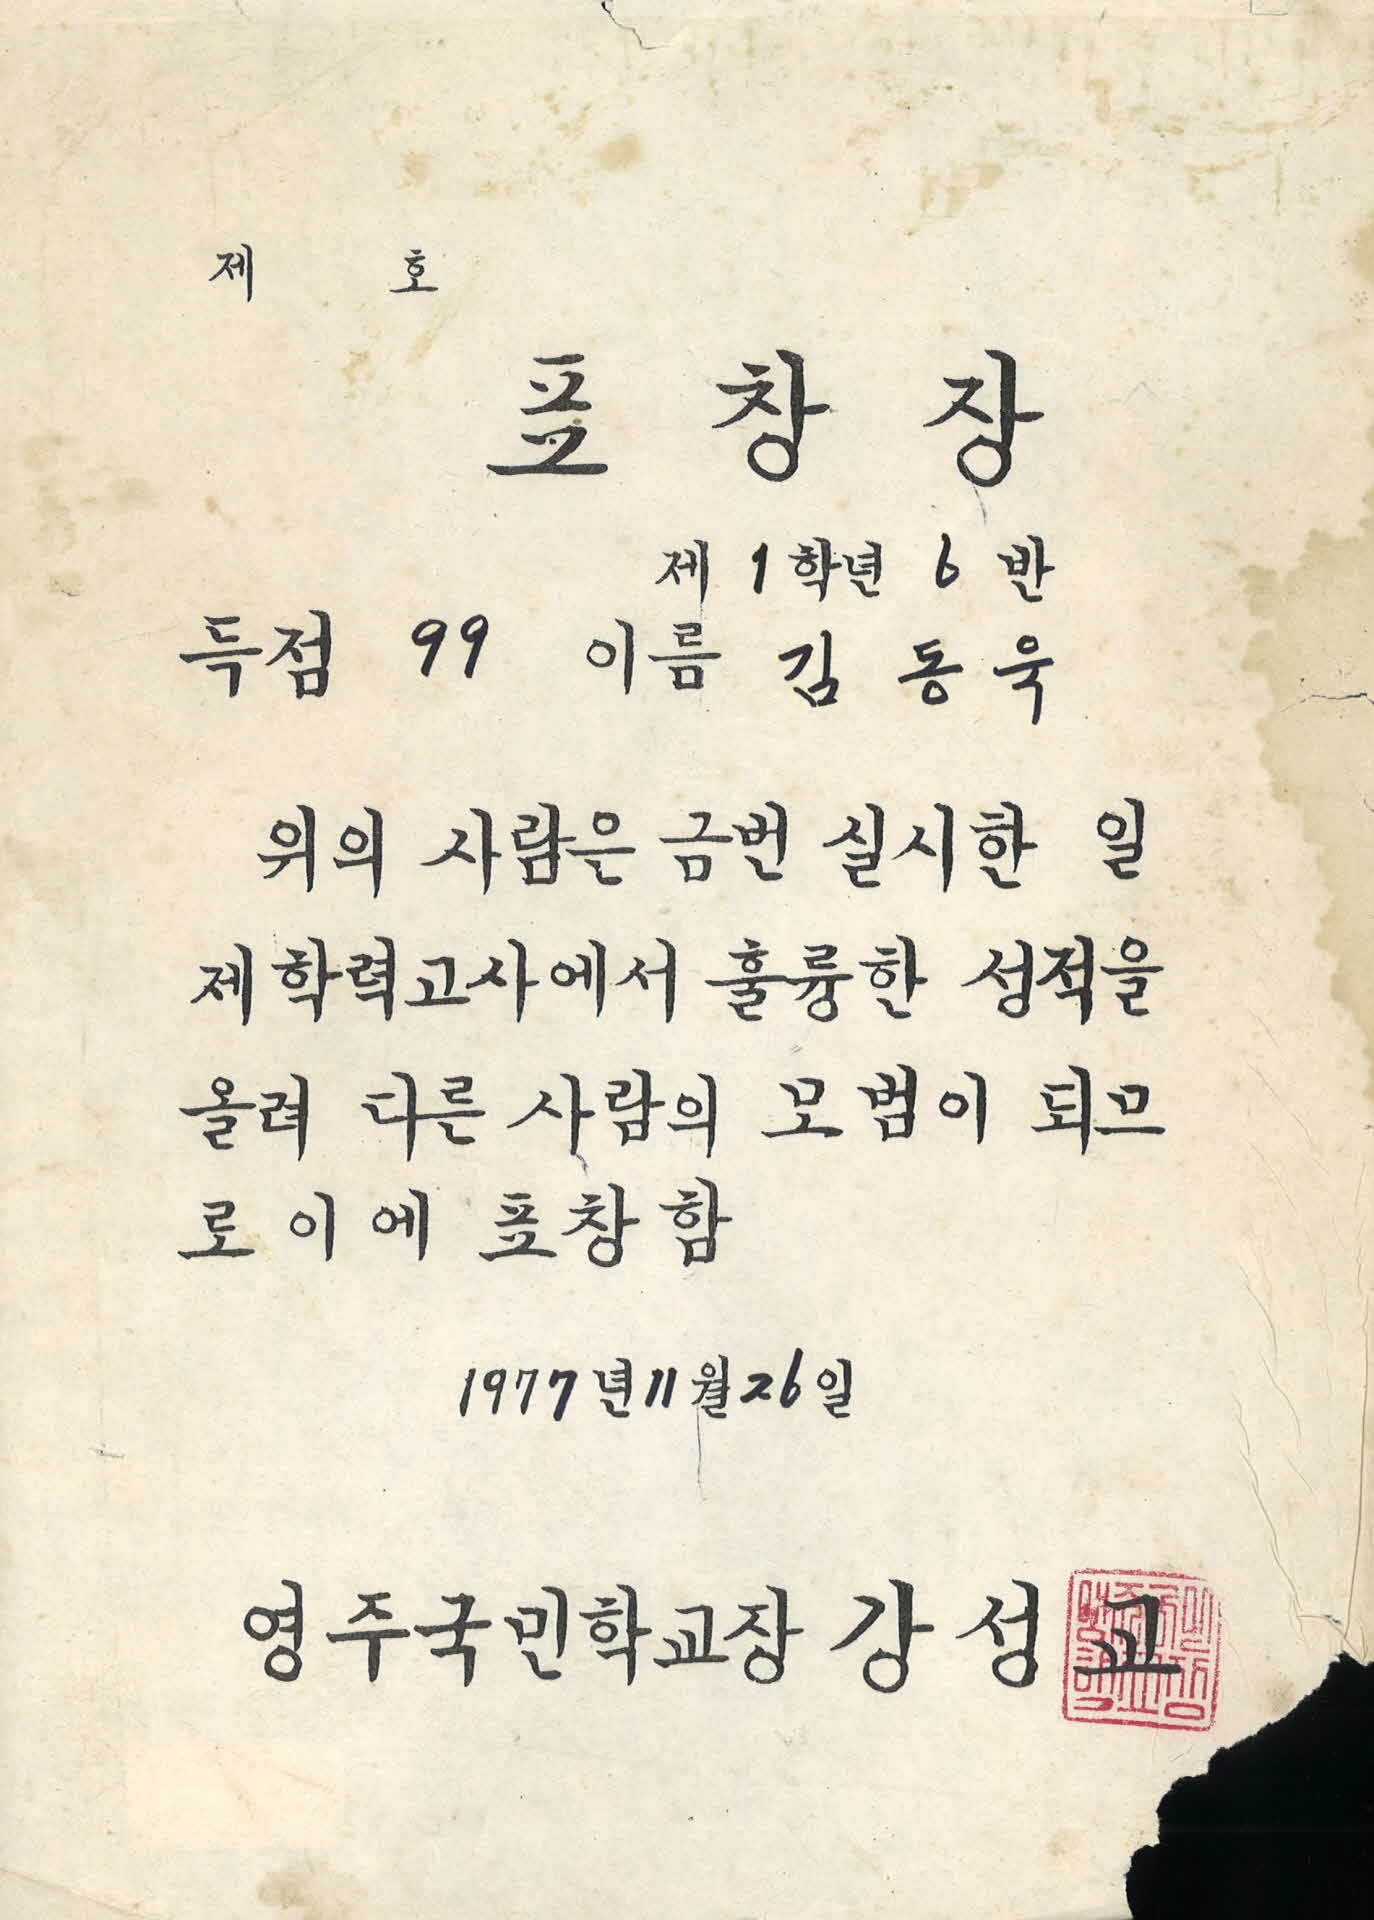 제 호
표창장
제 1 학년 6 반
득점 99 이름 김동욱
위의 사람은 금번 실시한 일
제학력고사에서 훌륭한 성적을
올려 다른 사람의 모범이 되므
로 이에 표창함
1977년 11월 26일
영주국민학교장 강성교